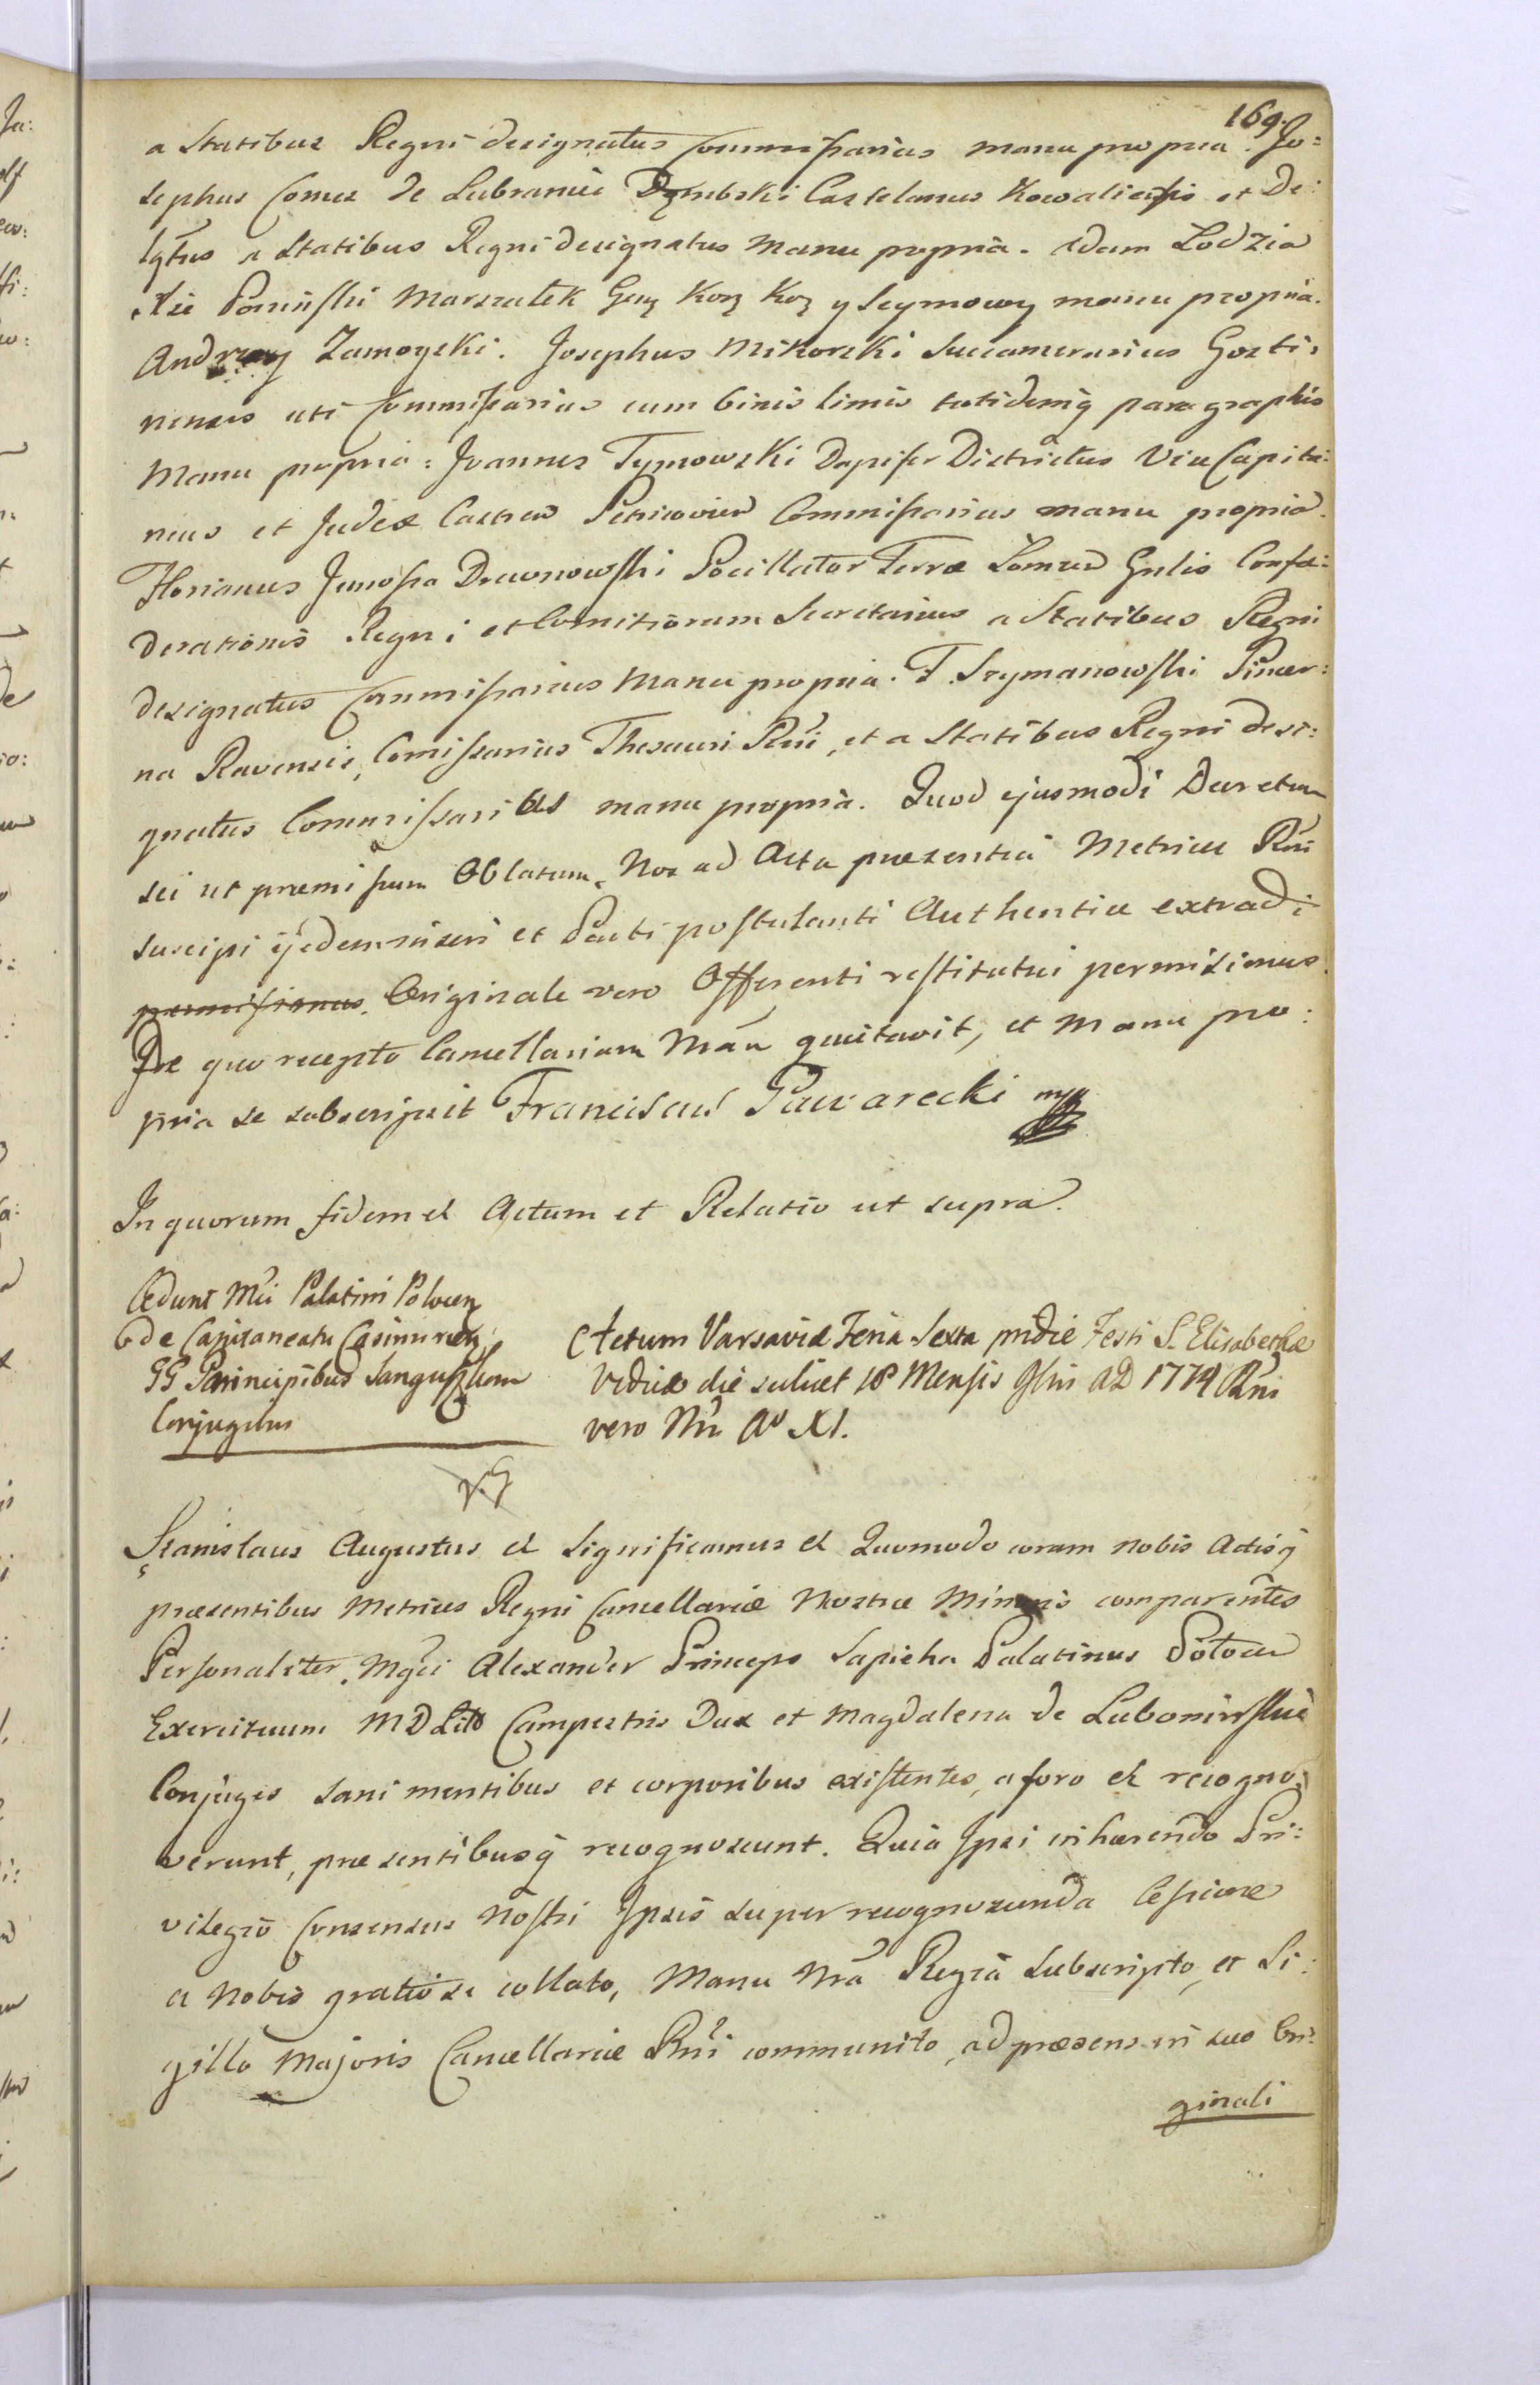 169.
a Statibus Regni designatus Commissarius manu propria. Jo:
sephus Comes de Lubraniec Dąmbski Castelanus Kowaliensis et De:
lgtus a Statibus Regni designatus Manu propria. Adam Łodzia
Xże Poniński Marszałek Gnỹ Korỹ Koỹ y Seymowy manu propria.
Andrzey Zamoyski. Josephus Mikorski Succamerarius Gosti:
nensis uti Commissarius cum binis limis totidemq paragraphis
Manu propria: Joannes Tymowski Dapifer Districtus Vice Capita:
neus et Judex Castren Petricovien Commissarius manu propria.
Florianus Junosza Drewnowski Pocillator Terræ Lomzen Gnlis Confæ:
derationis Regni et Comitiorum Secretarius a Statibus Regni
designatus Commissarius Manu propria. T. Szymanowski Pincer:
na Ravensis, Comissarius Thesauri Rni, et a Statibus Regni desi:
gnatus Commissarius manu propria. Quod ejusmodi Decretum
sei ut præmissum Oblatum, Nos ad Acta præsentia Metrices Rni
suscipi ijsdem inseri et Parti postulanti Authentice extradi
permissimus. Originale vero Offerenti restitutui permisimus.
De quo recepto Cancellariam Nrãm quietavit, et Manu pro:
pria se subscripsit Franciscus Piwarecki mp
In quorum fidem et Actum et Relatio ut supra.
Cedunt Mci Palatini Polocen
de Capitaneatu Casimirien
GG Parincipibus Sanguszkom
Conjugibus
Actum Varsaviæ Feria Sexta pridie Festi S. Elisabethæ
Viduæ die scilicet 18 Mensis 9bris AD 1774 Rni
vero Nri Aº XI.
Stanislaus Augustus et Significamus et Quomodo coram nobis Actisq
præsentibus Metrices Regni Cancellariæ Nostræ Minoris comparentes
Personaliter. Mgci Alexander Princeps Sapieha Palatinus Polocen
Exercituum MD Litt Campestris Dux et Magdalena de Lubomirskie
Conjuges sani mentibus et corporibus existentes, a foro et recogno:
verunt, præsentibusq recognoscunt. Quia Ipsi inhærendo Pri:
vilegio Consensus nostri Ipsis super recognoscenda Cessione
a Nobis gratiose collato, Manu Nrã Regia subscripto, et Si:
gillo Majoris Cancellariæ Rni communito, ad præsens in suo Ori:
ginali